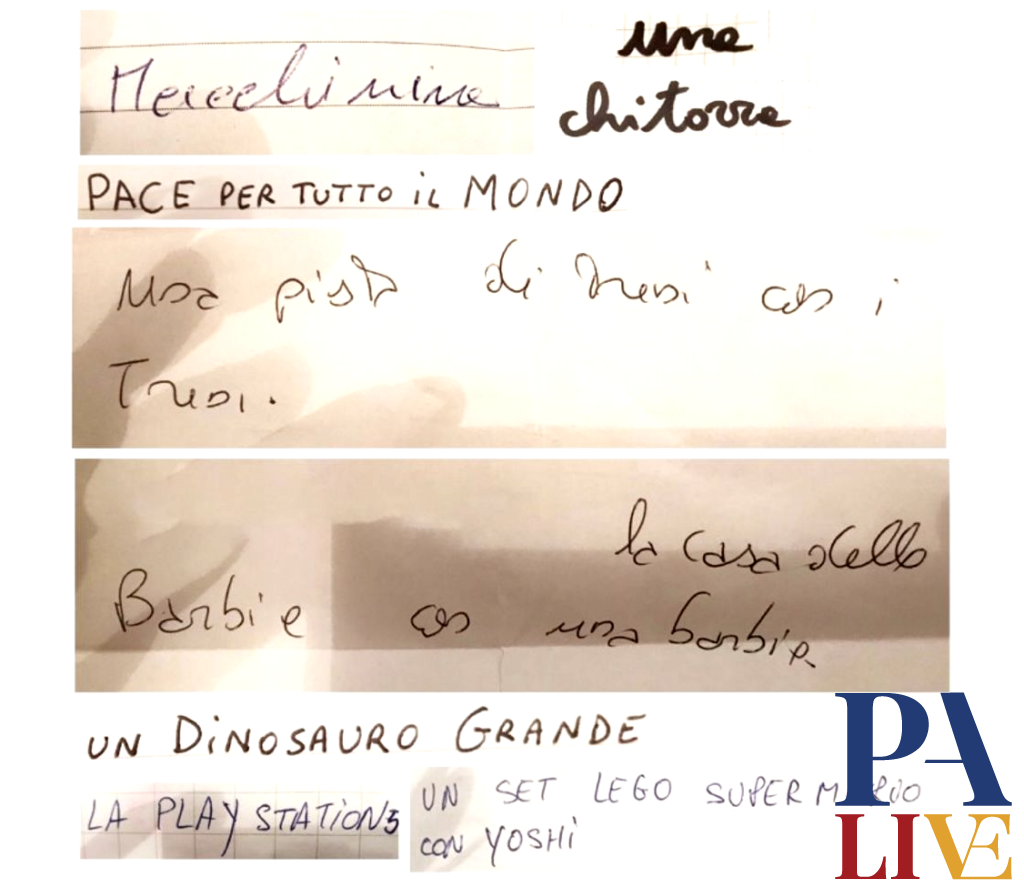 Macchinina
una
chitarra
PACE PER TUTTO iL MONDO
Una pista di treni con i
Treni.
la casa della
Barbie con una barbie
UN DiNOSAURO GRANDE
LA PLAY STATiON5
UN SET LEGO SUPER MARIO
CON YOSHi
PA
LIVE